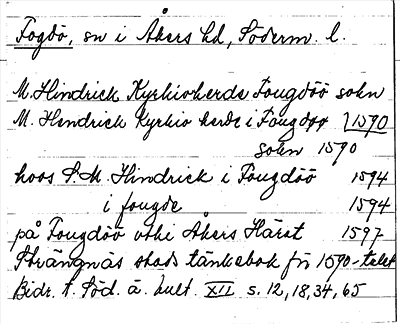 Fogdö, sn i Åkers hd, Söderm. l.
M. Hindrick Kyrkioherde Fougdöö sokn
M. Hendrick Kyrkio herde i Fougdöö 1590
sokn 1590
hoos S. M. Hindrick i Fougdöö 1594
i fougde 1594
på Fougdöö uthi Åkers Häret 1597
Strängnäs stads tänkebok för 1590-talet
Bidr. t. Söd. ä. kult. XII s. 12, 18, 34, 65